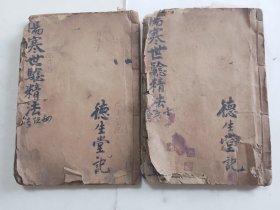 傷寒世驗精法
德生堂記
傷寒世驗精法
德生堂記